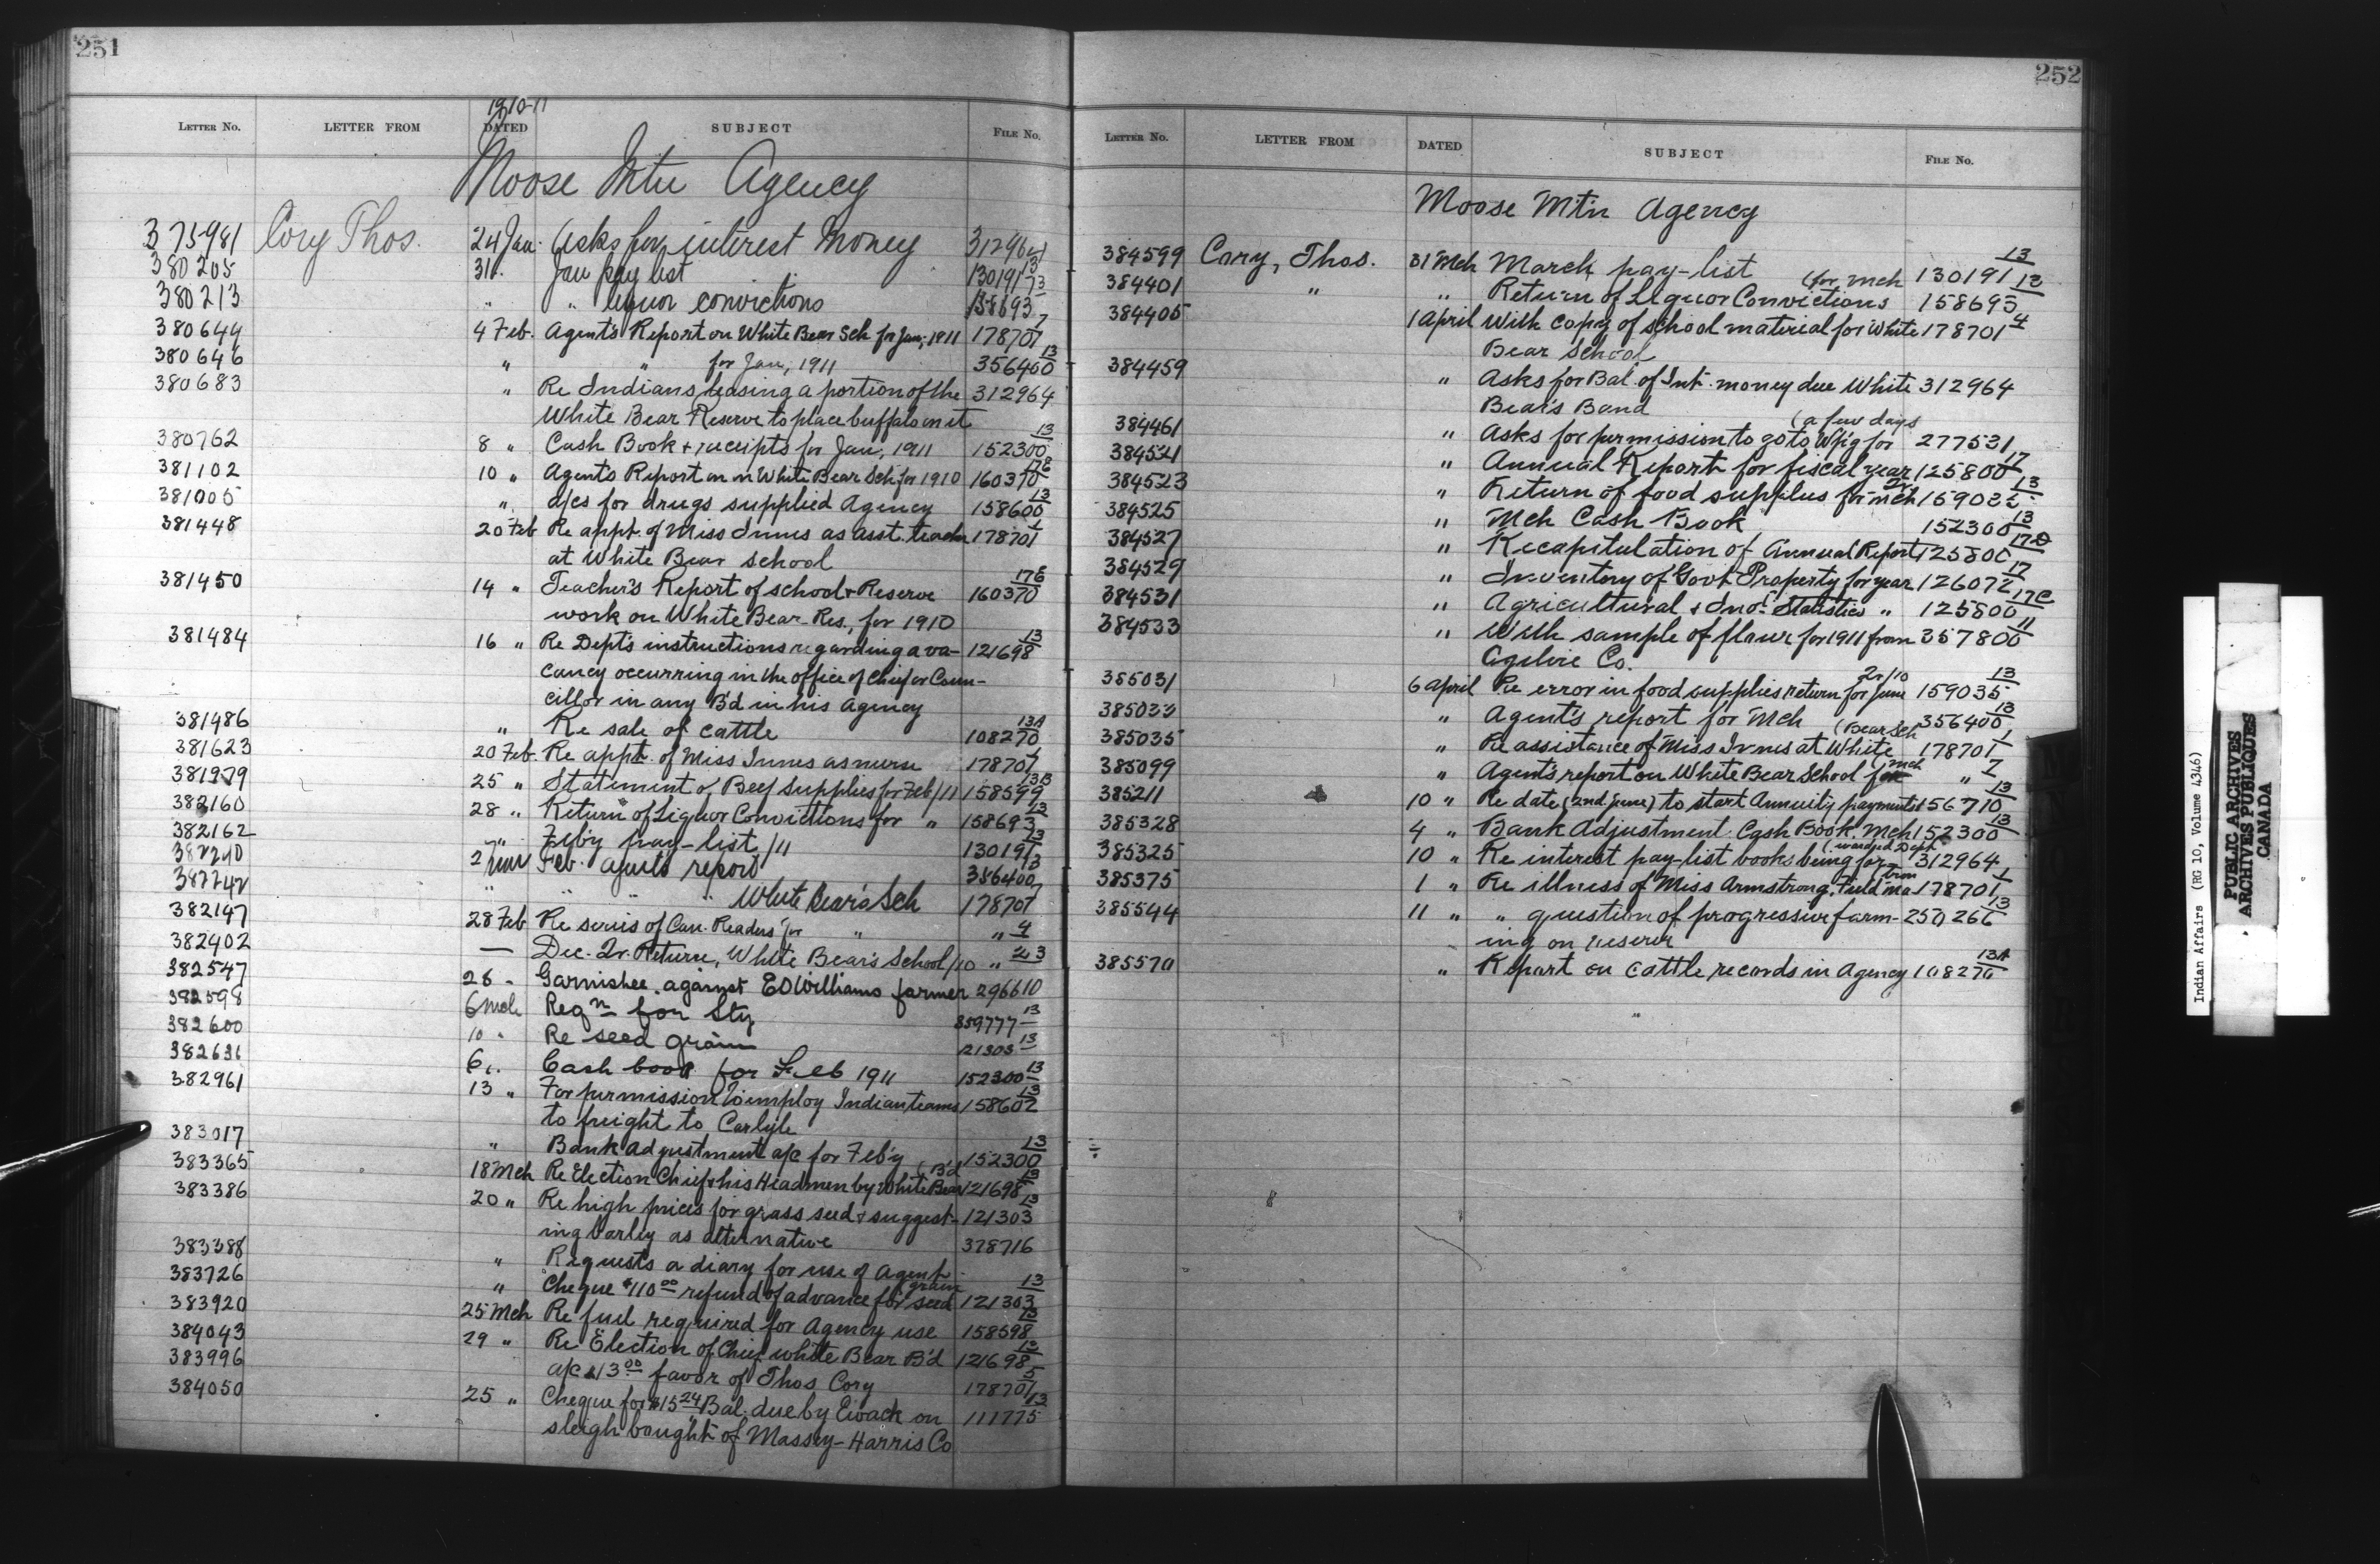 251
1910-11
LETTER NO. LETTER FROM DATED SUBJECT FILE NO.
Moose Mtn Agency
375981 Cory Thos. 24 Jan. Asks for interest money 312964
380205 31 " Jan pay list 130191 13
380213 " " liquor convictions 158693 13
380644 4 Feb. Agent's Report on White Bear Sch for Jan, 1911 178701 7
380646 " " for Jan, 1911 356400 13
380683 " Re Indians leasing a portion of the 312964
White Bear Reserve to place buffalo on it
380762 8 " Cash Book & receipts for Jan, 1911 152300 13
381102 10 " Agent's Report on White Bear Sch for 1910 160370 17E
381005 " a/cs for drugs supplied Agency 158600 13
381448 20 Feb Re appt. of Miss Innes as asst. teacher 178701 1
at White Bear school
381450 14 " Teacher's Report of school & Reserve 160370 17E
work on White Bear Res., for 1910
381484 16 " Re Dept's instructions regarding a va- 121698 13
cancy occurring in the office of Chief or Coun-
cillor in any B'd in his Agency
381486 " Re sale of cattle 108270 13A
381623 20 Feb. Re appt. of Miss Innes as nurse 178701
381979 25 " Statement of Beef supplies for Feb/11 158599 13B
382160 28 " Return of Liquor Convictions for " 158693 13
382162 " Feb'y pay-list /11 130191 13
382240 2 Mar Feb. agent's report 356400 13
382242 " " " White Bear's Sch 178701 7
382147 28 Feb Re series of Can. Readers for " " 4
382402 — Dec. Qr. Return, White Bear's School/10 " 23
382547 28 " Garnishee against E D Williams farmer 296610
382598 6 Mch Reqn for Sty 359777 13
382600 10 " Re seed grain 121303 13
382631 6 " Cash book for Feb 1911 152300 13
382961 13 " For permission to employ Indian teams 158602 13
to freight to Carlyle
383017 " Bank adjustment a/c for Feb'y 152300 13
383365 18 Mch Re Election Chief & his Headmen by White Bear (B'd 121698 13
383386 20 " Re high prices for grass seed & suggest- 121303 13
ing barley as alternative
383388 " Requests a diary for use of Agent 378716
383726 " Cheque $110.00 refund of advance for seed grain 121303 13
383920 25 Mch Re fuel required for Agency use 158598 13
384043 29 " Re Election of Chief White Bear B'd 121698 13
383996 a/c $13.00 favor of Thos Cory 178701 5
384050 25 " Cheque for $15.24 Bal. due by Ewack on 111775 13
sleigh bought of Massey-Harris Co
252
LETTER NO. LETTER FROM DATED SUBJECT FILE NO.
Moose Mtn Agency
384599 Cory, Thos. 31 Mch March pay-list 130191 13
384401 " " Return of Liquor Convictions (for Mch 158693 13
384405 1 April With copy of school material for White 178701 4
Bear School
384459 " Asks for Bal. of Int. money due White 312964
Bear's Band
384461 " Asks for permission to go to Wp'g for (a few days 277531
384521 " Annual Report for fiscal year 125800 17
384523 " Return of food supplies for Mch Qr 159035 13
384525 " Mch Cash Book 152300 13
384527 " Recapitulation of Annual Report 125800 17D
384529 " Inventory of Govt Property for year 126072 17
384531 " Agricultural & Ind'l Statistics " 125800 17C
384533 " With sample of flour for 1911 from 357800 11
Ogilvie Co.
385031 6 April Re error in food supplies return for June Qr/10 159035 13
385033 " Agent's report for Mch 356400 13
385035 " Re assistance of Miss Innes at White (Bear Sch 178701 1
385099 " Agent's report on White Bear School for Mch " 7
385211 10 " Re date (2nd June) to start Annuity payments 156710 13
385328 4 " Bank Adjustment Cash Book. Mch 152300 13
385325 10 " Re interest pay-list books being for- (warded Dept 312964
385375 1 " Re illness of Miss Armstrong, field matron 178701 1
385544 11 " " question of progressive farm- 250266 13
ing on reserve
385570 " Report on cattle records in Agency 108270 13A
Indian Affairs (RG 10, Volume 4346)
PUBLIC ARCHIVES
ARCHIVES PUBLIQUES
CANADA